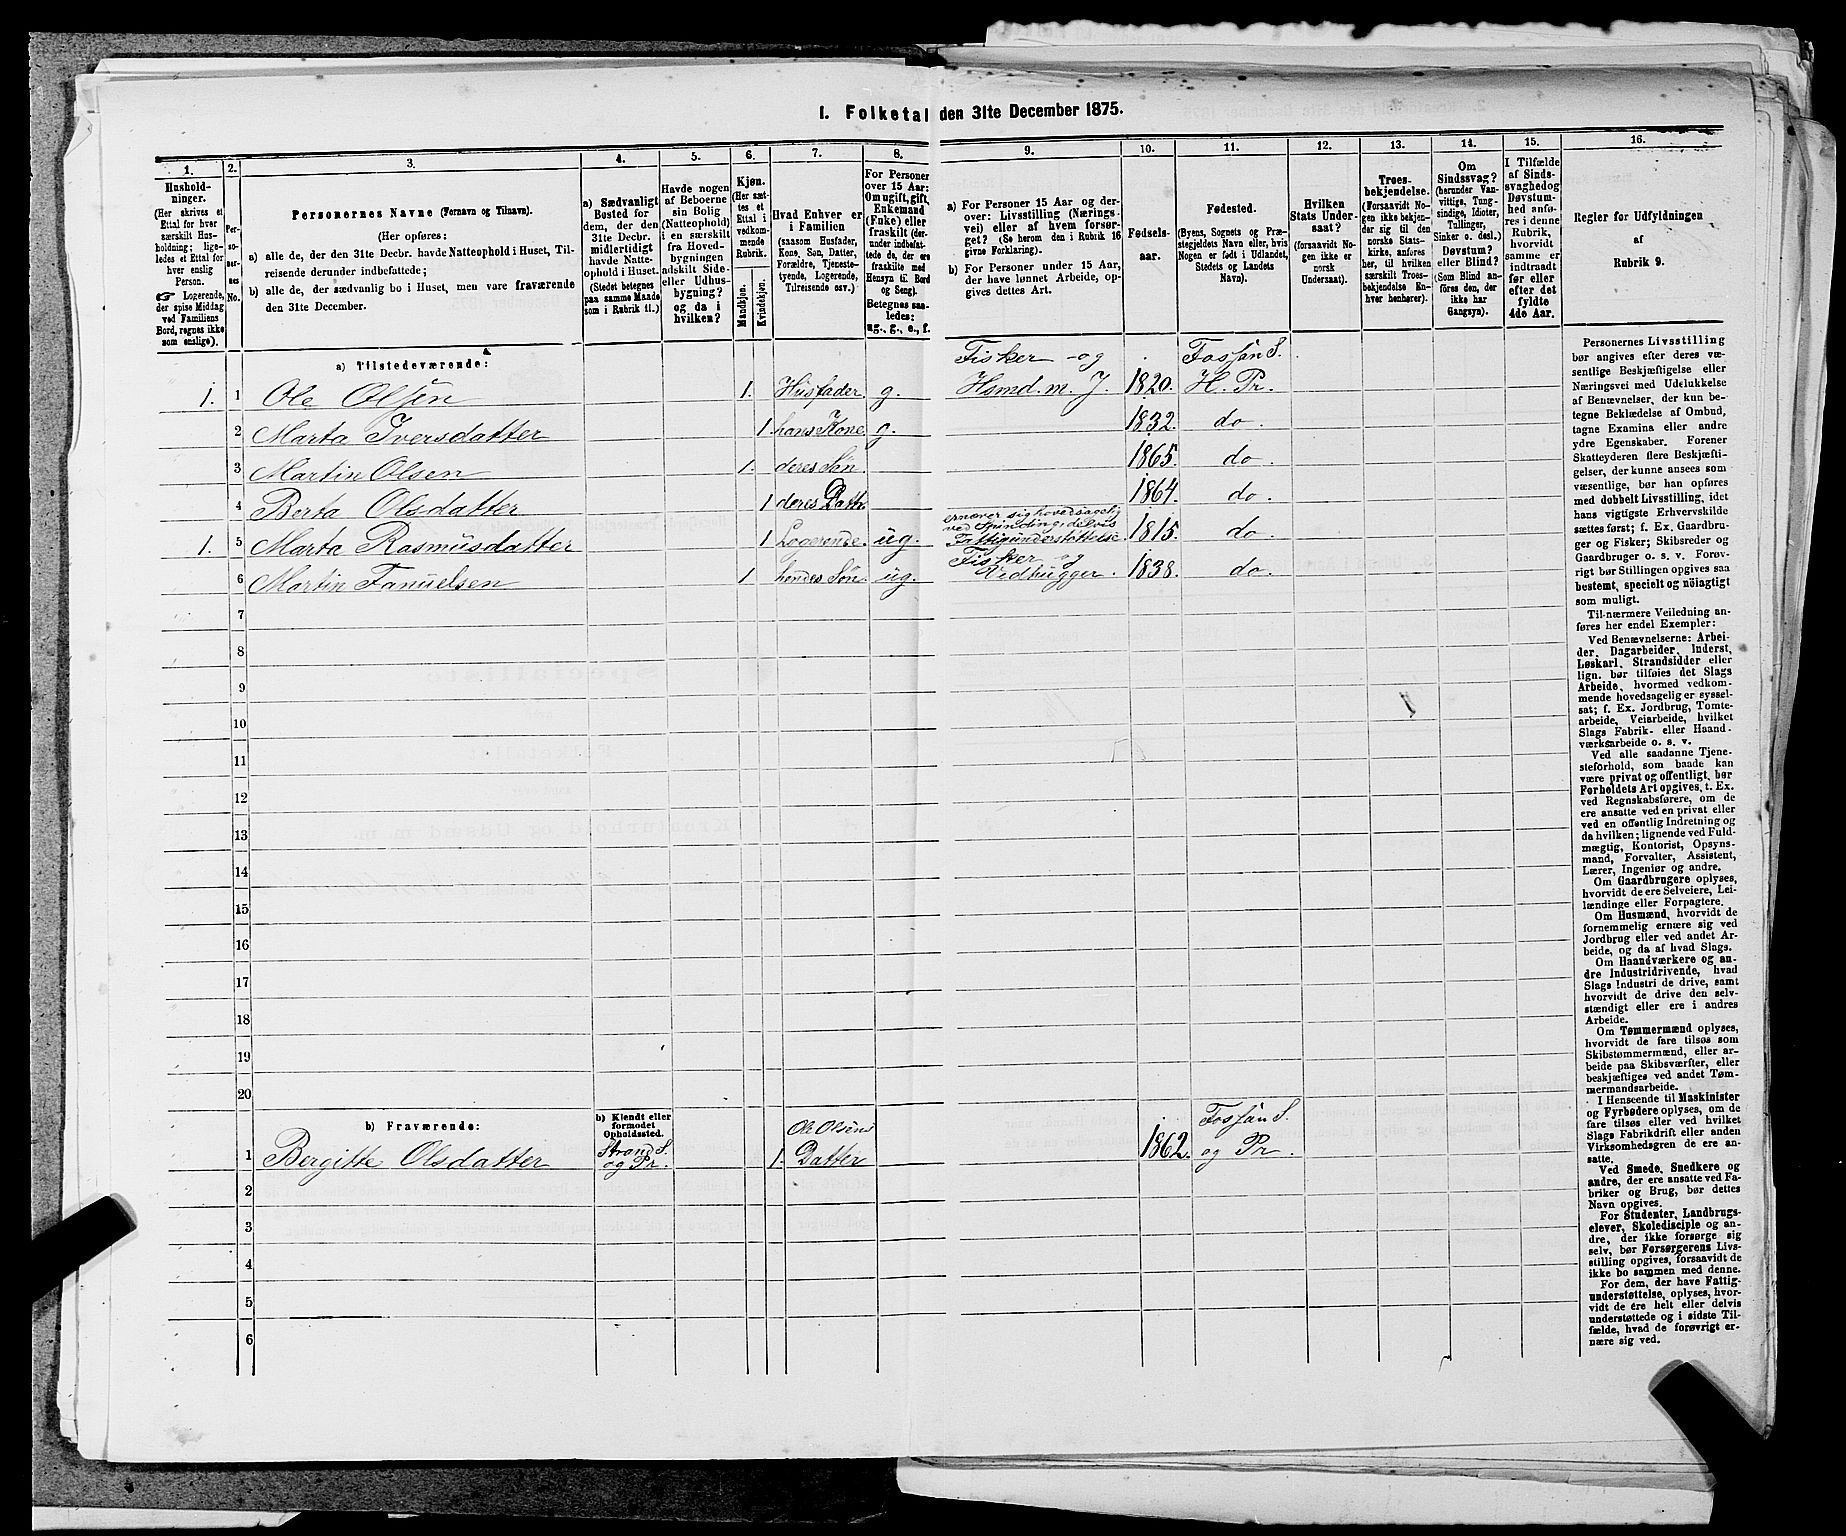 I. Folketal den 31te December 1875.
1.
2.
3.
4.
5.
6.
7.
8.
9.
10.
11.
12.
13.
14.
15.
16.
Hushold-
ninger.
(Her skrives et
Ettal for hver
særskilt Hus-
holdning; lige-
ledes et Ettal for
hver enslig
Person.
☞ Logerende,
der spise Middag
ved Familiens
Bord, regnes ikke
som enslige).
Per-
so-
ner-
nes
No.
Personernes Navne (Fornavn og Tilnavn).
(Her opføres:
a) alle de, der den 31te Decbr. havde Natteophold i Huset, Til-
reisende derunder indbefattede;
b) alle de, der sædvanlig bo i Huset, men vare fraværende
den 31te December.
a) Sædvanligt
Bosted for
dem, der den
31te Decbr.
midlertidigt
havde Natte-
ophold i Huset.
(Stedet betegnes
paa samme Maade
som i Rubrik 11.)
Havde nogen
af Beboerne
sin Bolig
(Natteophold)
i en særskilt
fra Hoved-
bygningen
adskilt Side-
eller Udhus-
bygning?
og da i
hvilken?
Kjøn.
(Her sæt-
tes et
Ettal i
vedkom-
mende
Rubrik.
Mandkjøn.
Kvindekjøn.
Hvad Enhver er
i Familien
(saasom Husfader,
Kone, Søn, Datter,
Forældre, Tjeneste-
tyende, Logerende,
Tilreisende osv.)
For Personer
over 15 Aar:
Om ugift, gift,
Enkemand
(Enke) eller
fraskilt (der-
under indbefat-
tede de, der ere
fraskilte med
Hensyn til Bord
og Seng).
Betegnes saa-
ledes:
ug., g., e., f.
a) For Personer 15 Aar og der-
over: Livsstilling (Nærings-
vei) eller af hvem forsør-
get? (Se herom den i Rubrik 16
givne Forklaring).
b) For Personer under 15 Aar,
der have lønnet Arbeide, op-
gives dettes Art.
Fødsels-
aar.
Fødested.
(Byens, Sognets og Præ-
stegjeldets Navn eller, hvis
Nogen er født i Udlandet,
Stedets og Landets
Navn).
Hvilken
Stats Under-
saat?
(forsaavidt No-
gen ikke er
norsk
Undersaat).
Troes-
bekjendelse.
(Forsaavidt No-
gen ikke bekjen-
der sig til den
norske Stats-
kirke, anføres
her, til hvilken
særskilt Troes-
bekjendelse En-
hver henhører).
Om
Sindssvag?
(herunder Van-
vittige, Tung-
sindige, Idioter,
Tullinger,
Sinker o. desl.)
Døvstum?
eller Blind?
(Som Blind an-
føres den, der
ikke har
Gangsyn).
I Tilfælde
af Sinds-
svaghed og
Døvstum-
hed anfø-
res i denne
Rubrik,
hvorvidt
samme er
indtraadt
før eller
efter det
fyldte
4de Aar.
Regler for Udfyldningen
af
Rubrik 9.
a) Tilstedeværende:
Fisker og
Fossan S.
1. 1 Ole Olsen 1. Husfader g. Hsmd. m. J. 1820. H. Pr.
2 Marta Iversdatter 1 hans Kone g. 1832. do.
3 Martin Olsen 1. deres Søn 1865. do.
4 Berta Olsdatter 1 deres Datth 1864. do.
ernæver sig hovedsagelig
ved Spinding, delvis
1. 5 Marta Rasmusdatter 1 Logerende ug. Fattigunderstøttelse 1815. do.
Fisker og
6 Martin Fanuelsen 1. hendes Søn ug. Vedhugger. 1838. do.
7
8
9
10
11
12
13
14
15
16
17
18
19
20
b) Fraværende:
b) Kjendt eller
formodet
Opholdssted.
Ole Olsens
Fossan S.
Strand S.
1 Bergitte Olsdatter og Pr. 1. Datter 1862. og Pr.
2
3
4
5
6
Personernes Livsstilling
bør angives efter deres væ-
sentlige Beskjæftigelse eller
Næringsvei med Udelukkelse
af Benævnelser, der kun be-
tegne Beklædelse af Ombud,
tagne Examina eller andre
ydre Egenskaber. Forener
Skatteyderen flere Beskjæfti-
gelser, der kunne ansees som
væsentlige, bør han opføres
med dobbelt Livsstilling, idet
hans vigtigste Erhvervskilde
sættes først; f. Ex. Gaardbru-
ger og Fisker; Skibsreder og
Gaardbruger o. s. v. Forøv-
rigt bør Stillingen opgives saa
bestemt, specielt og nöiagtigt
som muligt.
Til nærmere Veiledning an-
føres her endel Exempler:
Ved Benævnelserne: Arbei-
der, Dagarbeider, Inderst,
Løskarl, Strandsidder eller
lign. bør tilføies det Slags
Arbeide, hvormed vedkom-
mende hovedsagelig er syssel-
sat; f. Ex. Jordbrug, Tomte-
arbeide, Veiarbeide, hvilket
Slags Fabrik- eller Haand-
værksarbeide o. s. v.
Ved alle saadanne Tjene-
steforhold, som baade kan
være privat og offentligt, bør
Forholdets Art opgives, t. Ex.
ved Regnskabsførere, om de
ere ansatte ved en privat eller
ved en offentlig Indretning og
da hvilken; lignende ved Fuld-
mægtig, Kontorist, Opsyns-
mand, Forvalter, Assistent,
Lærer, Ingeniør og andre.
Om Gaardbrugere oplyses,
hvorvidt de ere Selveiere, Lei-
lændinge eller Forpagtere.
Om Husmænd, hvorvidt de
fornemmelig ernære sig ved
Jordbrug eller ved andet Ar-
beide, og da af hvad Slags.
Om Haandværkere og an-
dre Industridrivende, hvad
Slags Industri de drive, samt
hvorvidt de drive den selv-
stændigt eller ere i andres
Arbeide.
Om Tømmermænd oplyses,
hvorvidt de fare tilsøs som
Skibstømmermænd, eller ar-
beide paa Skibsværfter, eller
beskjæftiges ved andet Tøm-
mermandsarbeide.
I Henseende til Maskinister
og Fyrbødere oplyses, om de
fare tilsøs eller ved hvilket
Slags Fabrikdrift eller anden
Virksomhedsgren de ere an-
satte.
Ved Smede, Snedkere og
andre, der ere ansatte ved Fa-
briker og Brug, bør dettes
Navn opgives.
For Studenter, Landbrugs-
elever, Skoledisciple og an-
dre, der ikke forsørge sig
selv, bør Forsørgerens Livs-
stilling opgives, forsaavidt de
ikke bo sammen med denne.
For dem, der have Fattig-
understøttelse, oplyses, hvor-
vidt de ere helt eller delvis
understøttede og i sidste Til-
fælde, hvad de forøvrigt er-
nære sig ved.